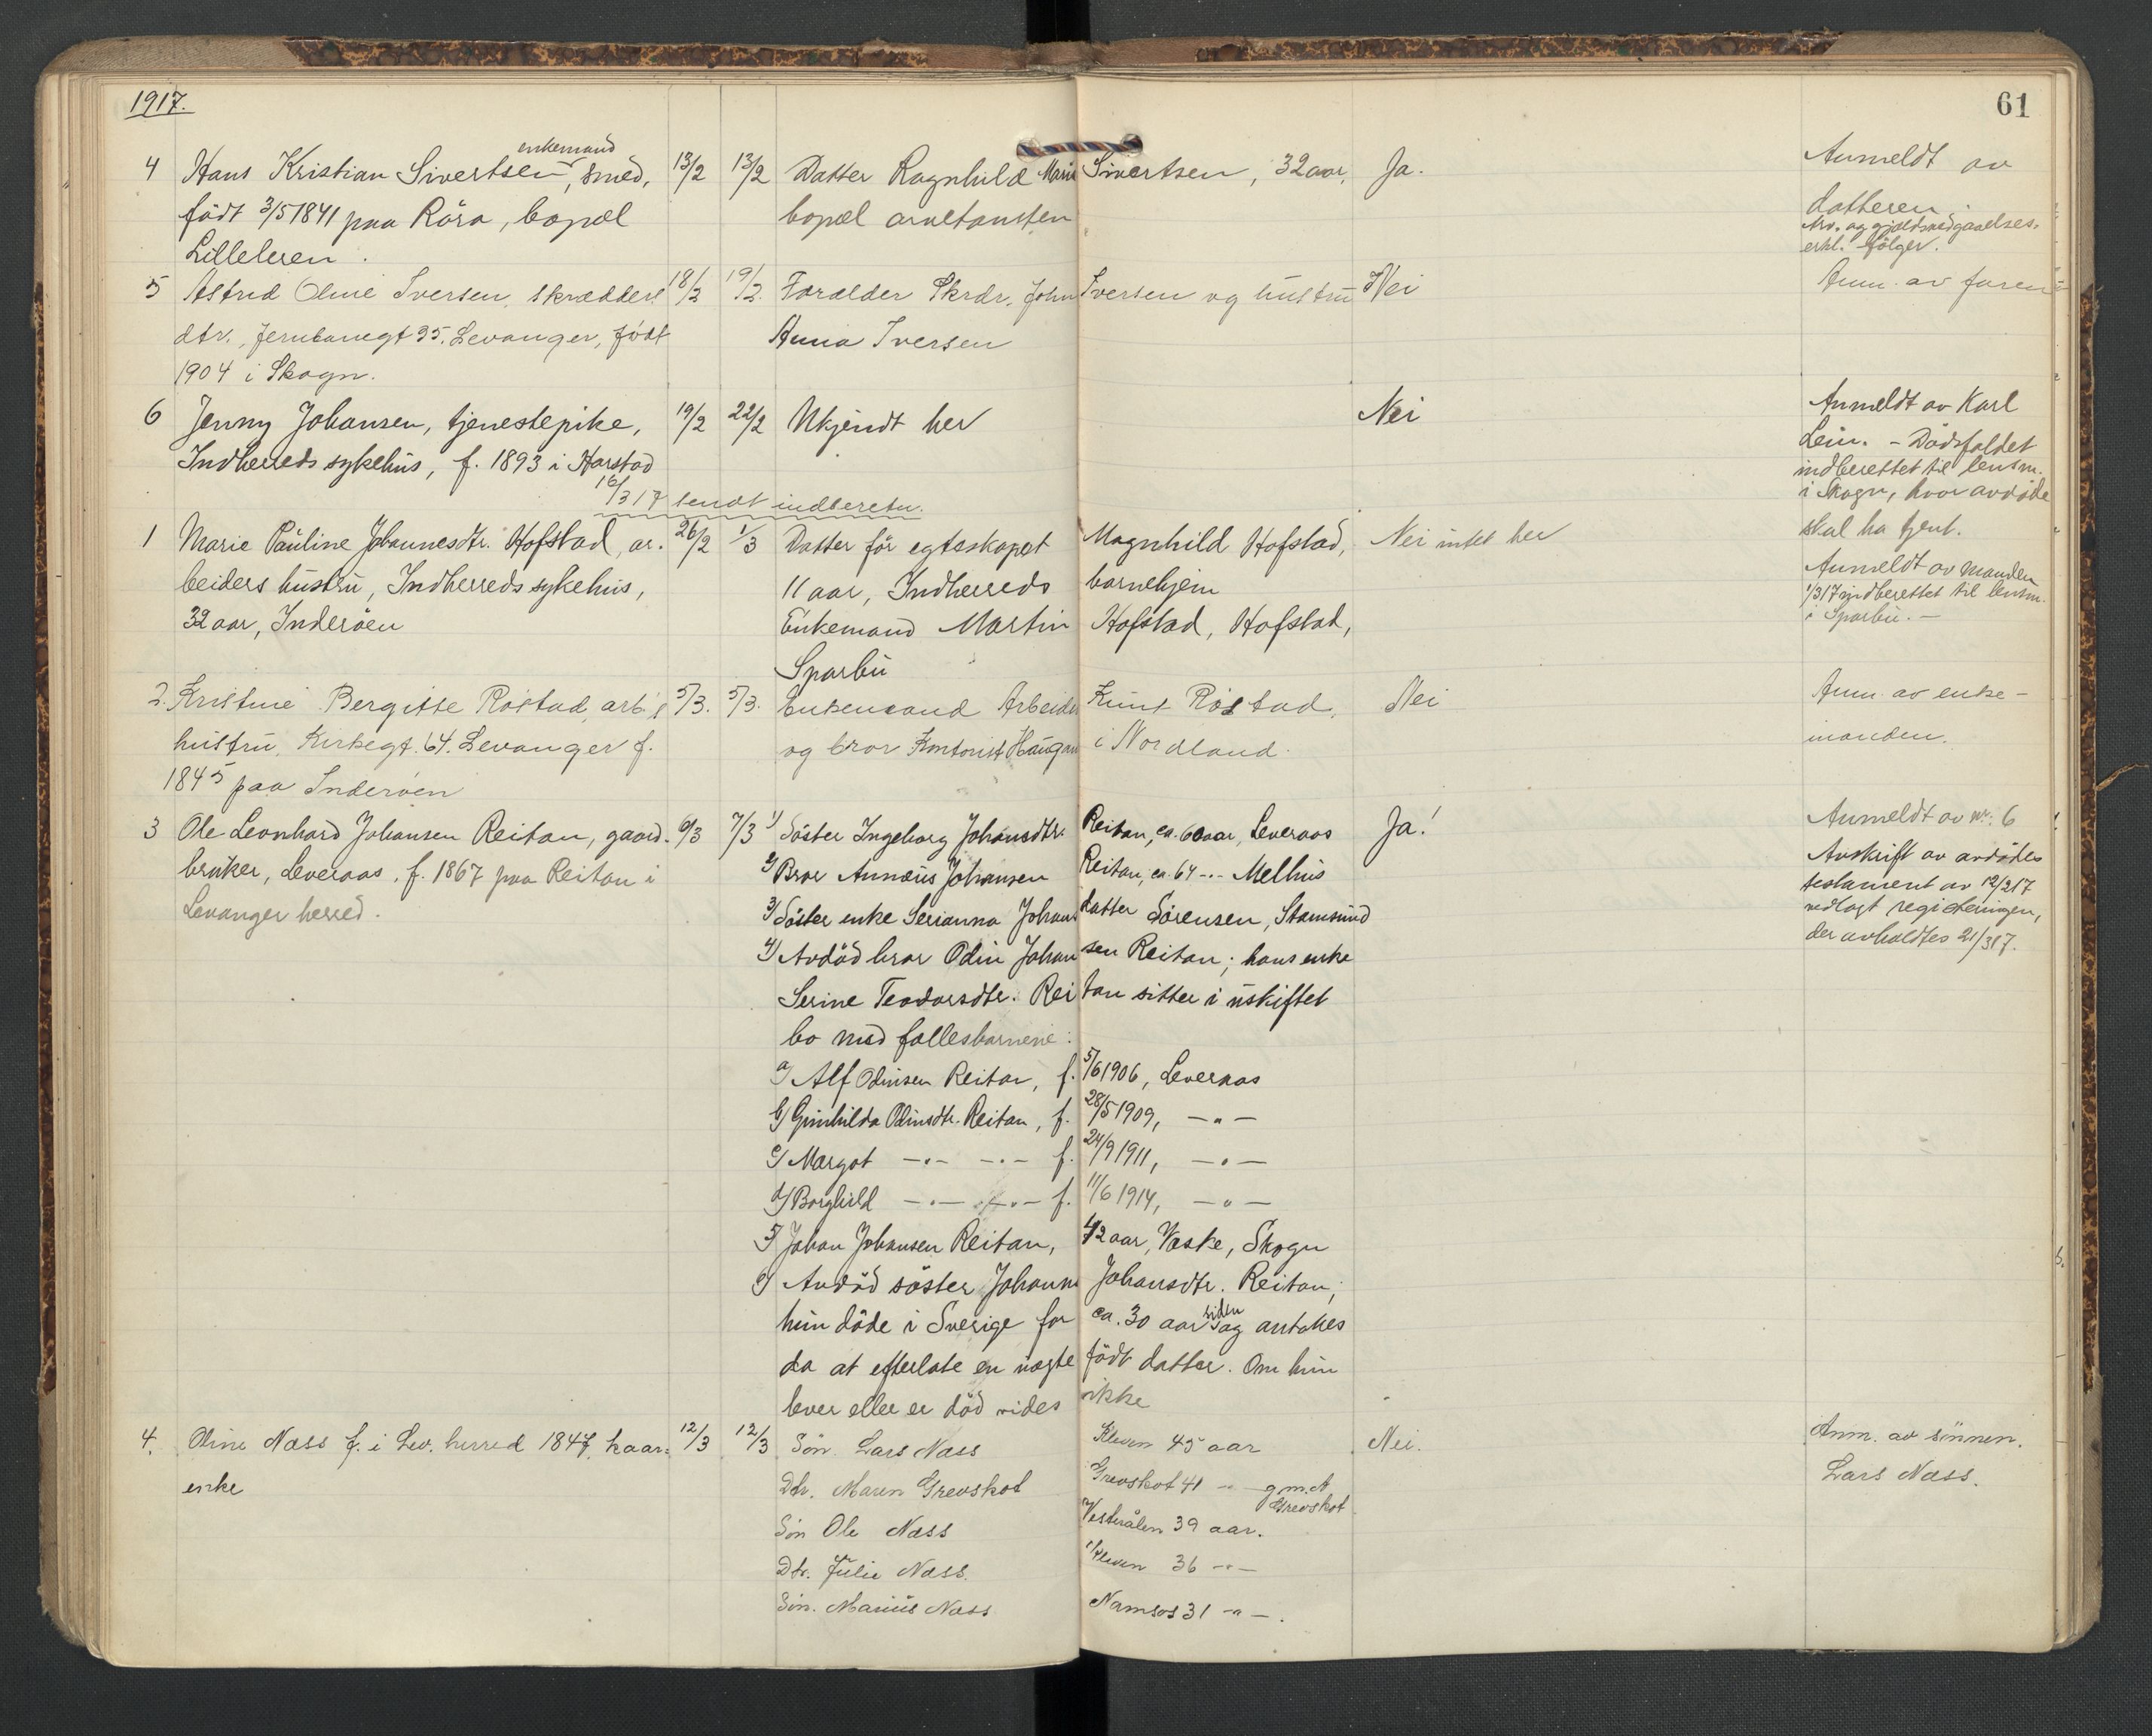 1917.
61
4 Hans Kristian Sivertsen, enkemand smed, 13/2 13/2 Datter Ragnhild Marie Sivertsen, 32 aar, Ja. Anmeldt av
født 3/5 1841 paa Røra, bopæl bopæl datteren.
Arv. og gjeldsvedgaaelses-
erkl. følger.
5 Astrid Oline Iversen, skrædders 18/2 19/2. Forælder Skrdr. John Iversen og hustru Nei Anm. av
dtr., Jernbanegt 35. Levanger, født Anna Iversen
1904 i Skogn.
6 Jenny Johansen, tjenestepike, 19/2 22/2 Ukjendt her Nei Anmeldt av Karl
Indherreds sykehus, f. 1893 i Harstad Lein. - Dødsfaldet
indberettet til lensm.
16/3 17 sendt indberetn. i Skogn, hvor avdøde
skal ha tjent.
1 Marie Pauline Johannesdtr. Hofstad, ar- 26/2 1/3 Datter før egteskapet Magnhild Hofstad, Nei intet her
beiders hustru, Indherreds sykehus, 11 aar, Indherreds barnehjem Anmeldt av manden
32 aar, Inderøen Enkemand Martin Hofstad, Hofstad, 1/3 17 indberettet til lensm.
Sparbu i Sparbu. -
2. Kristine Bergitte Røstad, arb.s 5/3. 5/3. Enkemand Arbeider Knut Røstad, Nei Anm. av enke-
hustru, Kirkegt. 64. Levanger f. og bror Kontorist Haugan i Nordland. manden.
1845 paa Inderøen
3 Ole Leonhard Johansen Reitan, gaard- 6/3 7/3 1/ Søster Ingeborg Johansdtr. Reitan, ca. 60 aar, Leveraas Ja! Anmeldt av nr. 6
bruker, Leveraas, f. 1867 paa Reitan i 2/ Bror Annæus Johansen Reitan, ca. 64 -"- Melhus Avskrift av avdødes
Levanger herred. 3/ Søster enke Serianna Johansdatter Sørensen, Stamsund testament av 12/2 17
vedlagt registeringen,
4/ Avdød bror Odin Johansen Reitan; hans enke der avholdtes 21/3 17.
Serine Teodorsdtr. Reitan sitter i uskiftet
bo med fællesbarnene:
a/ Alf Odinsen Reitan, f. 5/6 1906, Leveraas
b/ Gunhilda Odinsdtr. Reitan, f. 28/5 1909, -"-
c/ Margot -"- -"- f. 24/9 1911, -"-
d/ Borghild -"- -"- f. 11/6 1914, -"-
5/ Johan Johansen Reitan, 42 aar, Væske, Skogn
6/ Avdød søster Johanna Johansdtr. Reitan;
hun døde i Sverige for ca. 30 aar siden og antakes
da at efterlate en uegte født datter. Om hun
lever eller er død vides ikke
4. Oline Næss f. i Lev. herred 1847, kaar- 12/3 12/3 Søn Lars Næss Kleven 45 aar Nei. Anm. av sønnen.
enke Dtr. Maren Grevskot Grevskot 41 -"- g.m. A Grevskot Lars Næss.
Søn Ole Næss Vesterålen 39 aar.
Dtr. Julie Næss. Kleven 36 -"-
Søn. Marius Næss Namsos 31 -"-.